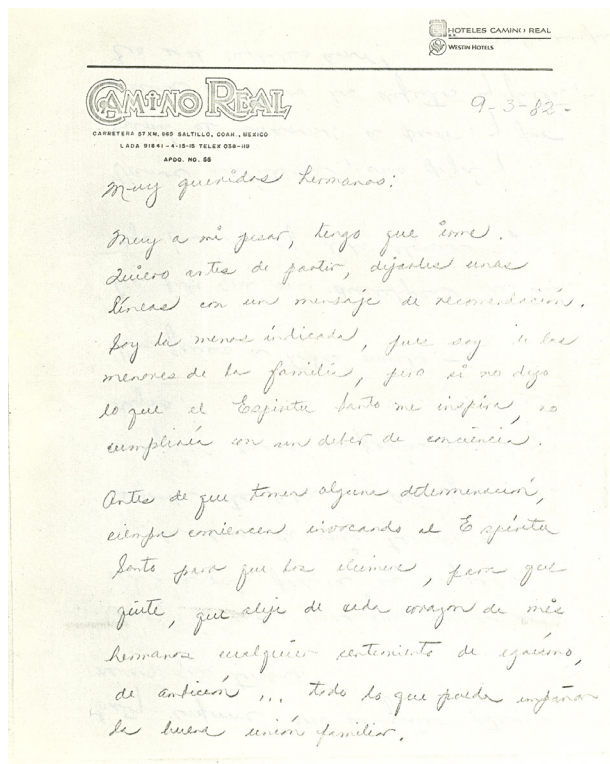 HOTELES CAMINO REAL
WESTIN HOTELS
CAMINO REAL
9-3-82-
CARRETERA 57 KM. 865 SALTILLO, COAH., MEXICO
LADA 91841-4-15-15 TELEX 038-119
APDO. NO. 55
Muy queridos hermanos:
Muy a mi pesar, tengo que irme.
Quiero antes de partir, dejarles unas
líneas con un mensaje de recomendación.
Soy la menos indicada, pues soy de las
menores de la familia, pero si no digo
lo que el Espíritu Santo me inspira, no
cumpliría con un deber de conciencia.
Antes de que tomen alguna determinación,
siempre comiencen invocando al Espíritu
Santo para que los ilumine, para que
quite, que aleje de cada corazón de mis
hermanos cualquier sentimiento de egoísmo,
de ambición ... todo lo que pueda empañar
la buena unión familiar.